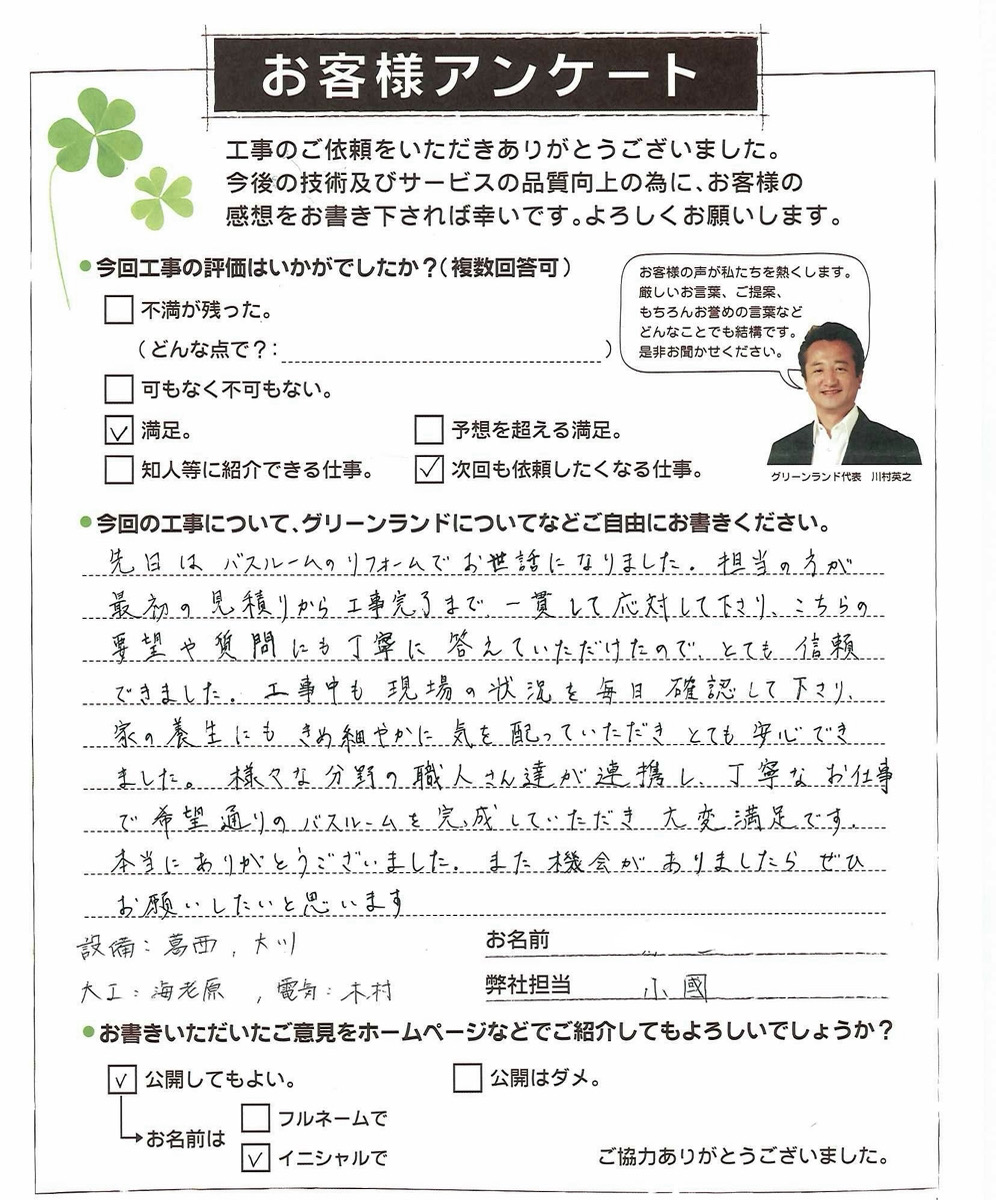 お客様アンケート
工事のご依頼をいただきありがとうございました。
今後の技術及びサービスの品質向上の為に、お客様の
感想をお書き下されば幸いです。よろしくお願いします。
●今回工事の評価はいかがでしたか？（複数回答可）
不満が残った。
（どんな点で？：　　）
可もなく不可もない。
満足。
予想を超える満足。
知人等に紹介できる仕事。
次回も依頼したくなる仕事。
お客様の声が私たちを熱くします。
厳しいお言葉、ご提案、
もちろんお誉めの言葉など
どんなことでも結構です。
是非お聞かせください。
グリーンランド代表　川村英之
●今回の工事について、グリーンランドについてなどご自由にお書きください。
先日は バスルームのリフォームで お世話になりました。担当の方が
最初の見積りから工事完了まで、一貫して応対して下さり、こちらの
要望や質問にも丁寧に答えていただけたので、とても信頼
できました。工事中も現場の状況を毎日確認して下さり、
家の養生にもきめ細やかに気を配っていただきとても安心でき
ました。様々な分野の職人さん達が連携し、丁寧なお仕事
で希望通りのバスルームを完成していただき大変満足です。
本当にありがとうございました。また機会がありましたらぜひ
お願いしたいと思います
設備：葛西，大川
大工：海老原，電気：木村
お名前
弊社担当　小國
●お書きいただいたご意見をホームページなどでご紹介してもよろしいでしょうか？
公開してもよい。
公開はダメ。
お名前は
フルネームで
イニシャルで
ご協力ありがとうございました。